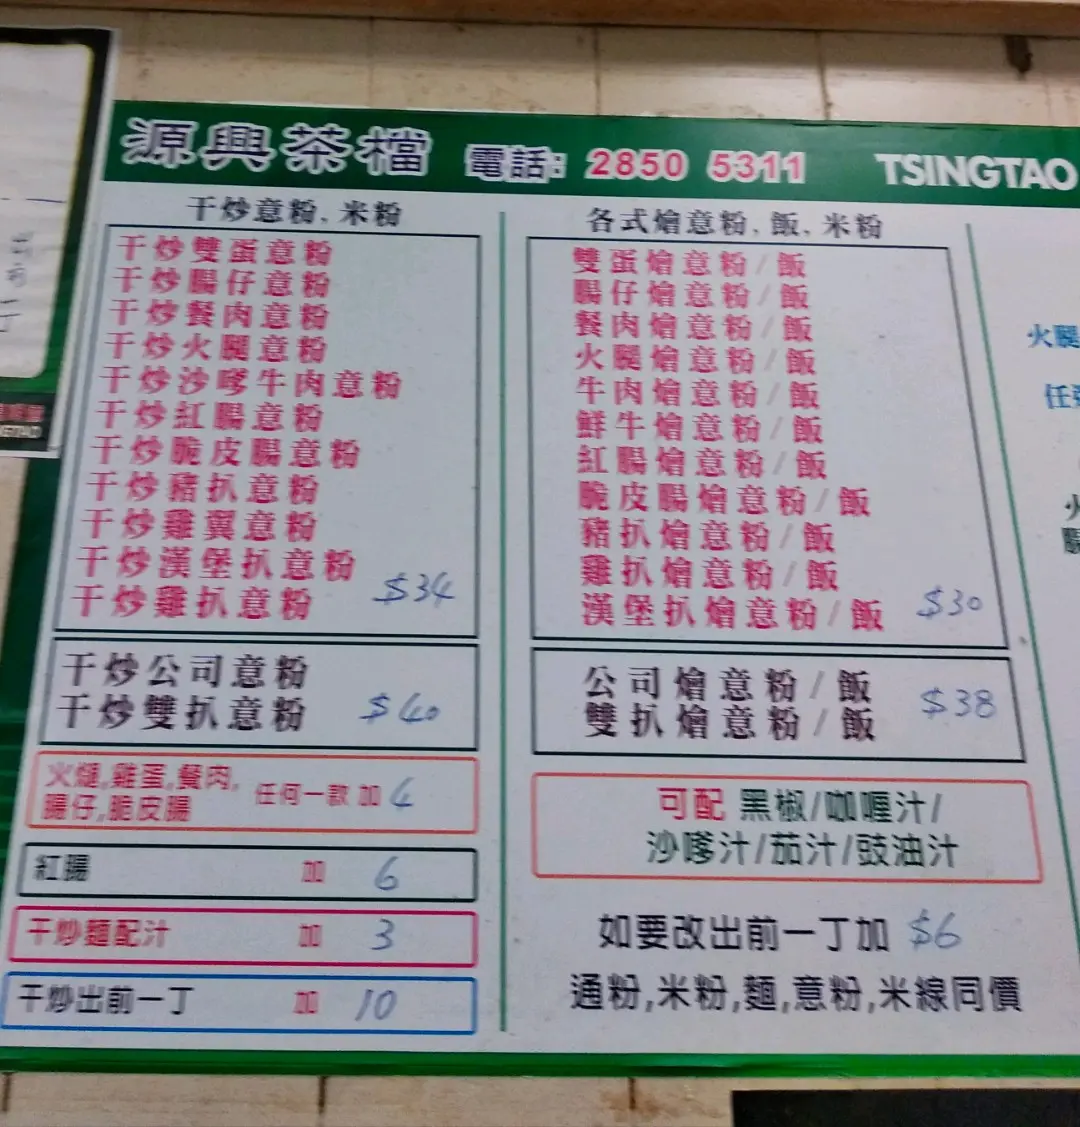 源興茶檔 電話: 2850 5311 TSINGTAO
干炒意粉, 米粉
干炒雙蛋意粉
干炒腸仔意粉
干炒餐肉意粉
干炒火腿意粉
干炒沙嗲牛肉意粉
干炒紅腸意粉
干炒脆皮腸意粉
干炒豬扒意粉
干炒雞翼意粉
干炒漢堡扒意粉
干炒雞扒意粉 $34
干炒公司意粉
干炒雙扒意粉 $40
火腿,雞蛋,餐肉,
腸仔,脆皮腸 任何一款 加 4
紅腸 加 6
干炒麵配汁 加 3
干炒出前一丁 加 10
各式燴意粉, 飯, 米粉
雙蛋燴意粉/飯
腸仔燴意粉/飯
餐肉燴意粉/飯
火腿燴意粉/飯
牛肉燴意粉/飯
鮮牛燴意粉/飯
紅腸燴意粉/飯
脆皮腸燴意粉/飯
豬扒燴意粉/飯
雞扒燴意粉/飯
漢堡扒燴意粉/飯 $30
公司燴意粉/飯
雙扒燴意粉/飯 $38
可配 黑椒/咖喱汁/
沙嗲汁/茄汁/豉油汁
如要改出前一丁加 $6
通粉,米粉,麵,意粉,米線同價
火腿
任